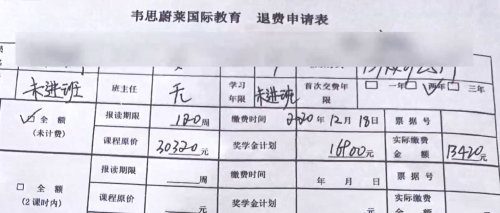 韦思蔚莱国际教育 退费申请表
未进班 班主任 无 学习年限 未进班 首次交费年限 □一年 ☑两年 □三年
☑全额（未计费） 报读期限 120周 缴费时间 2020年12月18日 票据号
课程原价 30320元 奖学金计划 16900元 实际缴费金额 13420元
□全额（2课时内） 报读期限 周 缴费时间 年 月 日 票据号
课程原价 元 奖学金计划 元 实际缴费